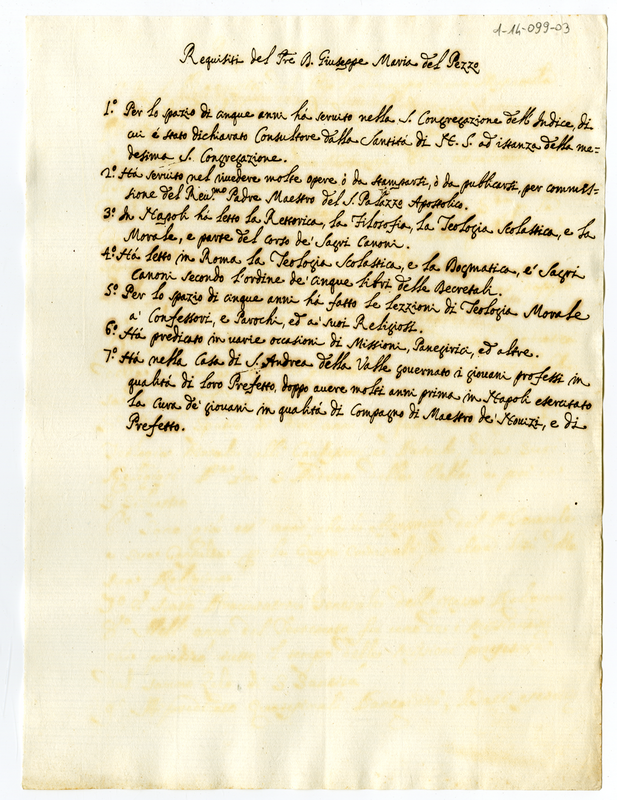 1-14-099-03
Requisiti del Pre D. Giuseppe Maria del Pezzo
1.º Per lo spazio di cinque anni há servito nella S. Congregazione dell'Indice, di
cui é stato dichiarato Consultore dalla Santitá di N. S. ad istanza della me-
desima S. Congregazione.
2.º Há servito nel rivedere molte opere ó da stamparsi, ó da publicarsi, per commis-
sione del Reu.mo Padre Maestro del S. Palazzo Apostolico.
3.º In Napoli há letto la Rettorica, la Filosofia, la Teologia Scolastica, e la
Morale, e parte del Corso de' Sagri Canoni.
4.º Há letto in Roma la Teologia Scolastica, e la Dogmatica, e' Sagri
Canoni secondo l'ordine de' cinque libri delle Decretali.
5.º Per lo spazio di cinque anni há fatto le lezzioni di Teologia Morale
a' Confessori, e Parochi, ed a' suoi Religiosi.
6.º Há predicato in varie occasioni di Missioni, Panegirici, ed altre.
7.º Há nella Casa di S. Andrea della Valle governato i giovani professi in
qualitá di loro Prefetto, doppo avere molti anni prima in Napoli esercitato
la Cura de' giovani in qualitá di Compagno di Maestro de' Novizi, e di
Prefetto.